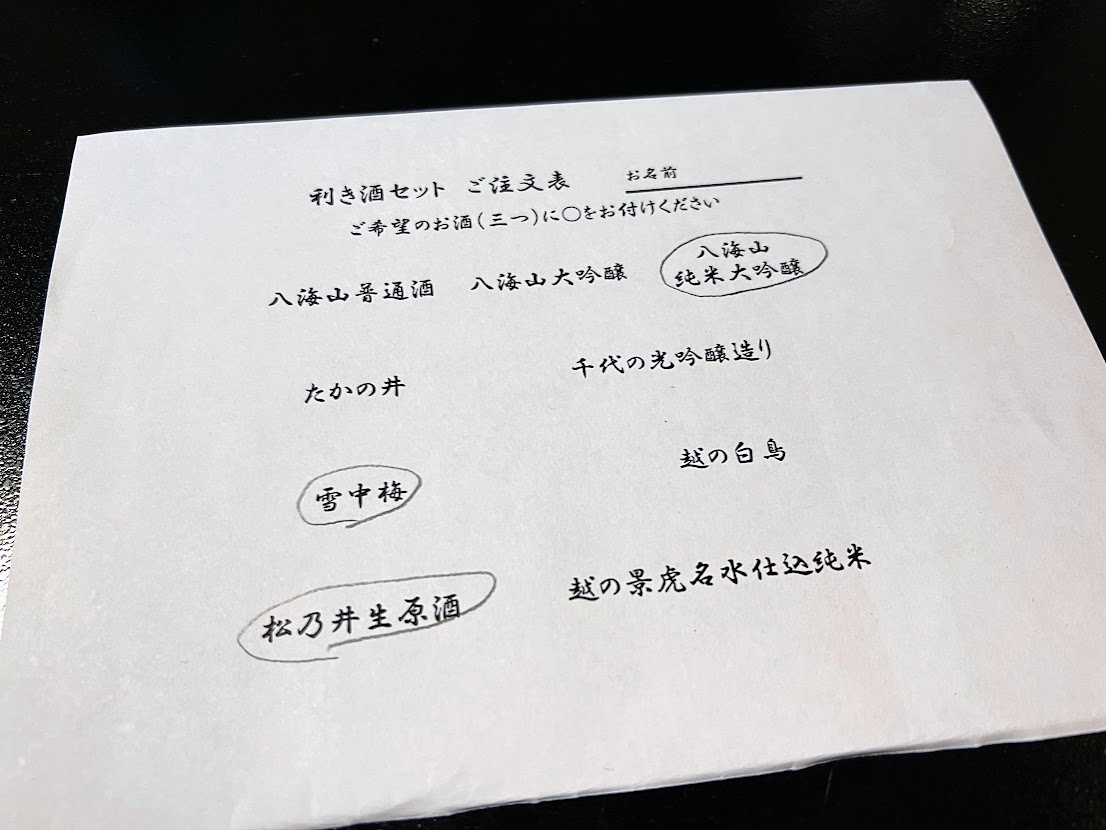 利き酒セット ご注文表
お名前
ご希望のお酒(三つ)に○をお付けください
八海山普通酒
八海山大吟醸
八海山
純米大吟醸
たかの井
千代の光吟醸造り
雪中梅
越の白鳥
松乃井生原酒
越の景虎名水仕込純米